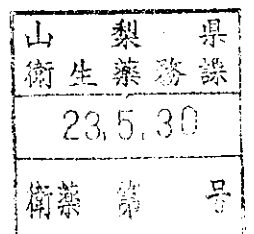 山梨県
衛生薬務課
23.5.30
衛薬第 号